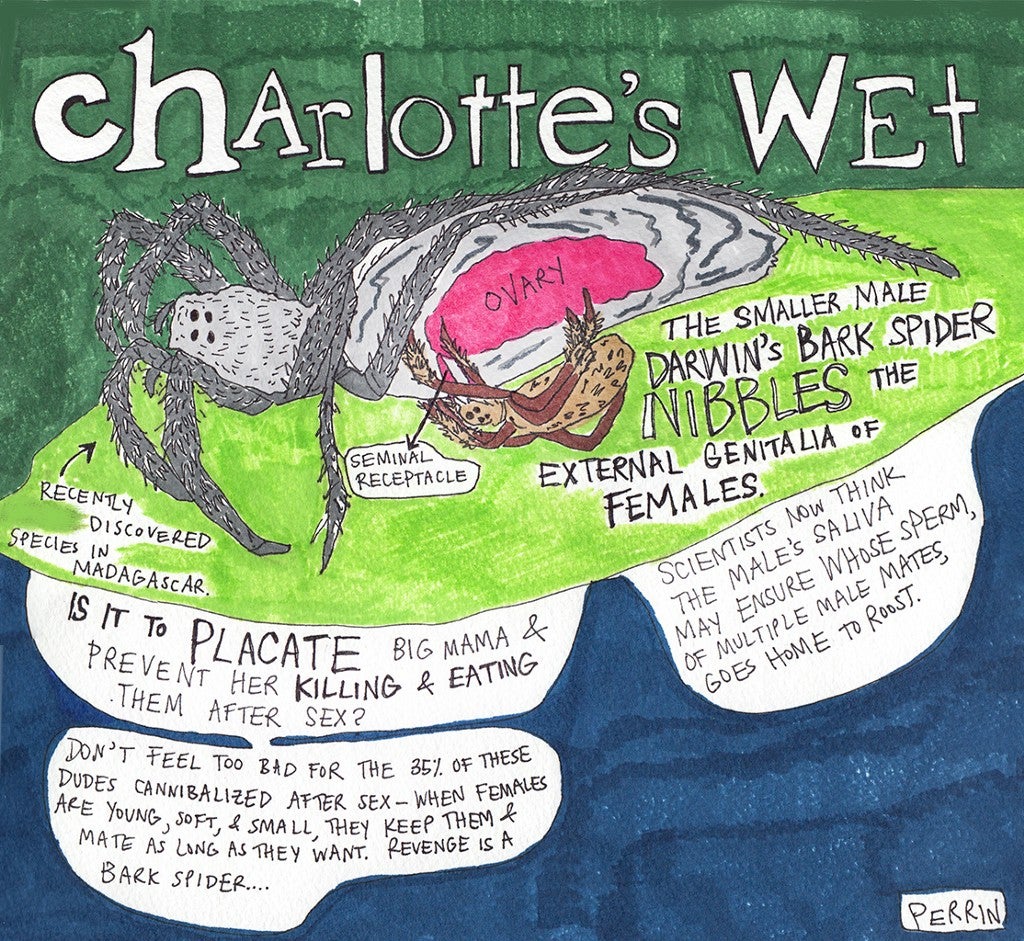 chArlotte's WEt
OVARY
THE SMALLER MALE
DARWIN'S BARK SPIDER
NIBBLES THE
EXTERNAL GENITALIA OF
FEMALES.
SEMINAL
RECEPTACLE
RECENTLY
DISCOVERED
SPECIES IN
MADAGASCAR.
SCIENTISTS NOW THINK
THE MALE'S SALIVA
MAY ENSURE WHOSE SPERM,
OF MULTIPLE MALE MATES,
GOES HOME TO ROOST.
IS IT TO PLACATE BIG MAMA &
PREVENT HER KILLING & EATING
THEM AFTER SEX?
DON'T FEEL TOO BAD FOR THE 35% OF THESE
DUDES CANNIBALIZED AFTER SEX – WHEN FEMALES
ARE YOUNG, SOFT, & SMALL, THEY KEEP THEM &
MATE AS LONG AS THEY WANT. REVENGE IS A
BARK SPIDER....
PERRIN